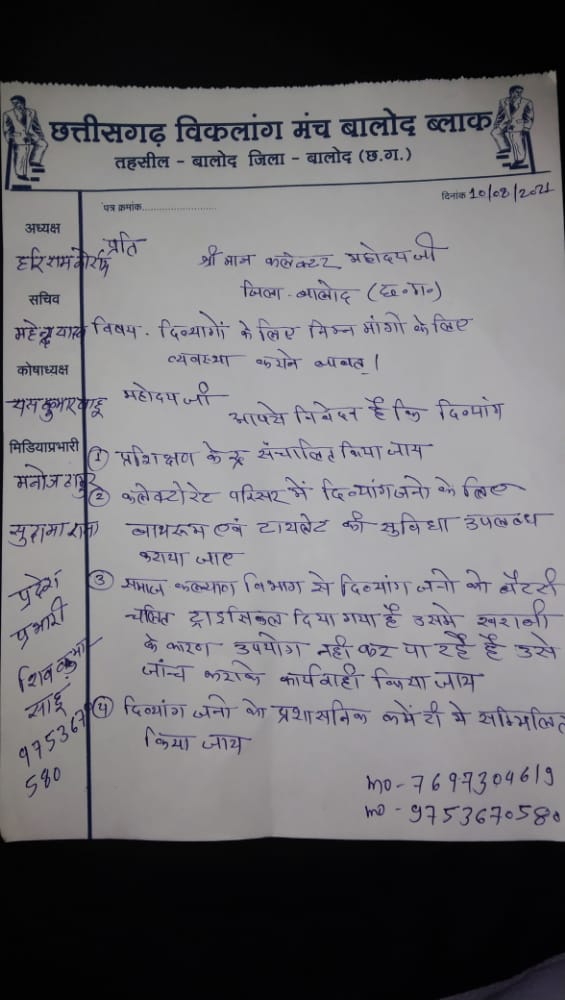 छत्तीसगढ़ विकलांग मंच बालोद ब्लाक
तहसील - बालोद जिला - बालोद (छ.ग.)
पत्र क्रमांक......................
दिनांक 10/02/2021
अध्यक्ष
हरिराम
सचिव
महेन्द्र
कोषाध्यक्ष
मिडियाप्रभारी
मनोज ठाकुर
प्रदेश
प्रभारी
शिव कुमार
साहू
9753670
580
प्रति
श्री मान कलेक्टर महोदय जी
जिला - बालोद (छ.ग.)
विषय - दिव्यागों के लिए निम्न मांगो के लिए
व्यवस्था कराने बाबत् ।
महोदय जी
आपसे निवेदन है कि दिव्यांग
① प्रशिक्षण केन्द्र संचालित किया जाय
② कलेक्टोरेट परिसर में दिव्यांगजनो के लिए
बाथरूम एवं टायलेट की सुविधा उपलब्ध
कराया जाए
③ समाज कल्याण विभाग से दिव्यांग जनो को बैटरी
चलित ट्राईसिकल दिया गया है उसमे खराबी
के कारण उपयोग नही कर पा रहे है उसे
जाँच कराके कार्यवाही किया जाय
④ दिव्यांग जनो को प्रशासनिक कमेटी मे सम्मिलित
किया जाय
mo - 7697304619
mo - 9753670580